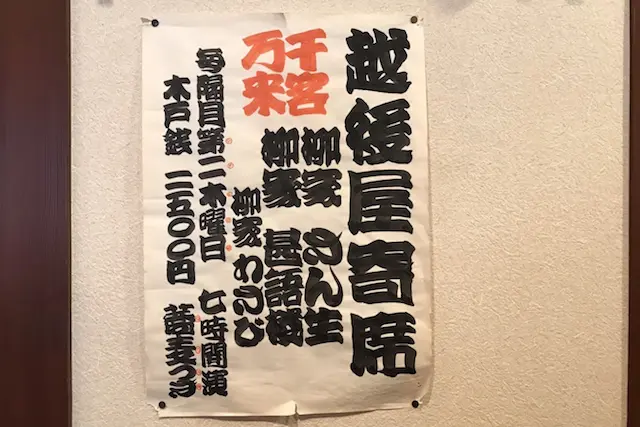 越後屋寄席
千客
万来
柳家 さん生
柳家 甚語楼
柳家 わさび
毎隔月第二木曜日 七時開演
木戸銭 二五〇〇円 蕎麦つき